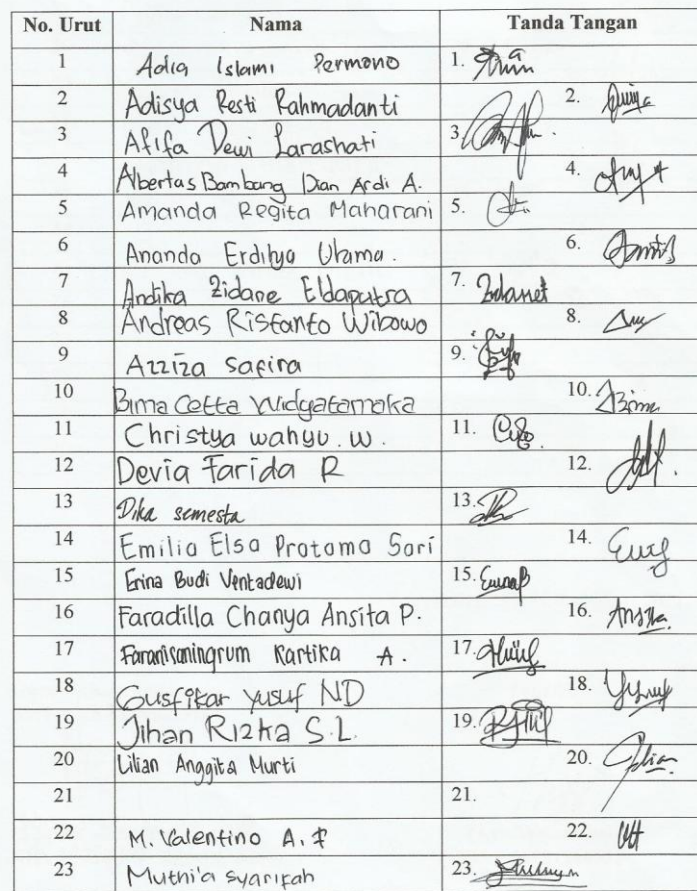 No. Urut Nama Tanda Tangan
1 Adia Islami Permono 1.
2 Adisya Resti Rahmadanti 2.
3 Afifa Dewi Larashati 3.
4 Albertas Bambang Dian Ardi A. 4.
5 Amanda Regita Maharani 5.
6 Ananda Erditya Utama. 6.
7 Andika Zidane Eldaputra 7.
8 Andreas Ristanto Wibowo 8.
9 Azziza Safira 9.
10 Bima Cetta Widyatamaka 10.
11 Christya wahyu. w. 11.
12 Devia Farida R 12.
13 Dika semesta 13.
14 Emilia Elsa Pratama Sari 14.
15 Erina Budi Ventadewi 15.
16 Faradilla Chanya Ansita P. 16. Ansita
17 Kartika A. 17.
18 Gusfikar Yusuf ND 18.
19 Jihan Rizka S.L. 19.
20 Lilian Anggita Murti 20.
21 21.
22 M. Valentino A. F 22.
23 Muthi'a syarifah 23.